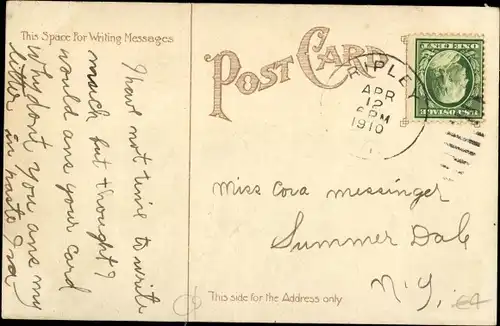 This Space For Writing Messages
I have not time to write
much but thought I
would ans your card
Why dont you ans my
letter in haste Iva
POST CARD
RIPLEY
APR
12
6 PM
1910
U.S. POSTAGE
ONE CENT
Miss Cora Messinger
Summer Dale
N.Y.
This side for the Address only